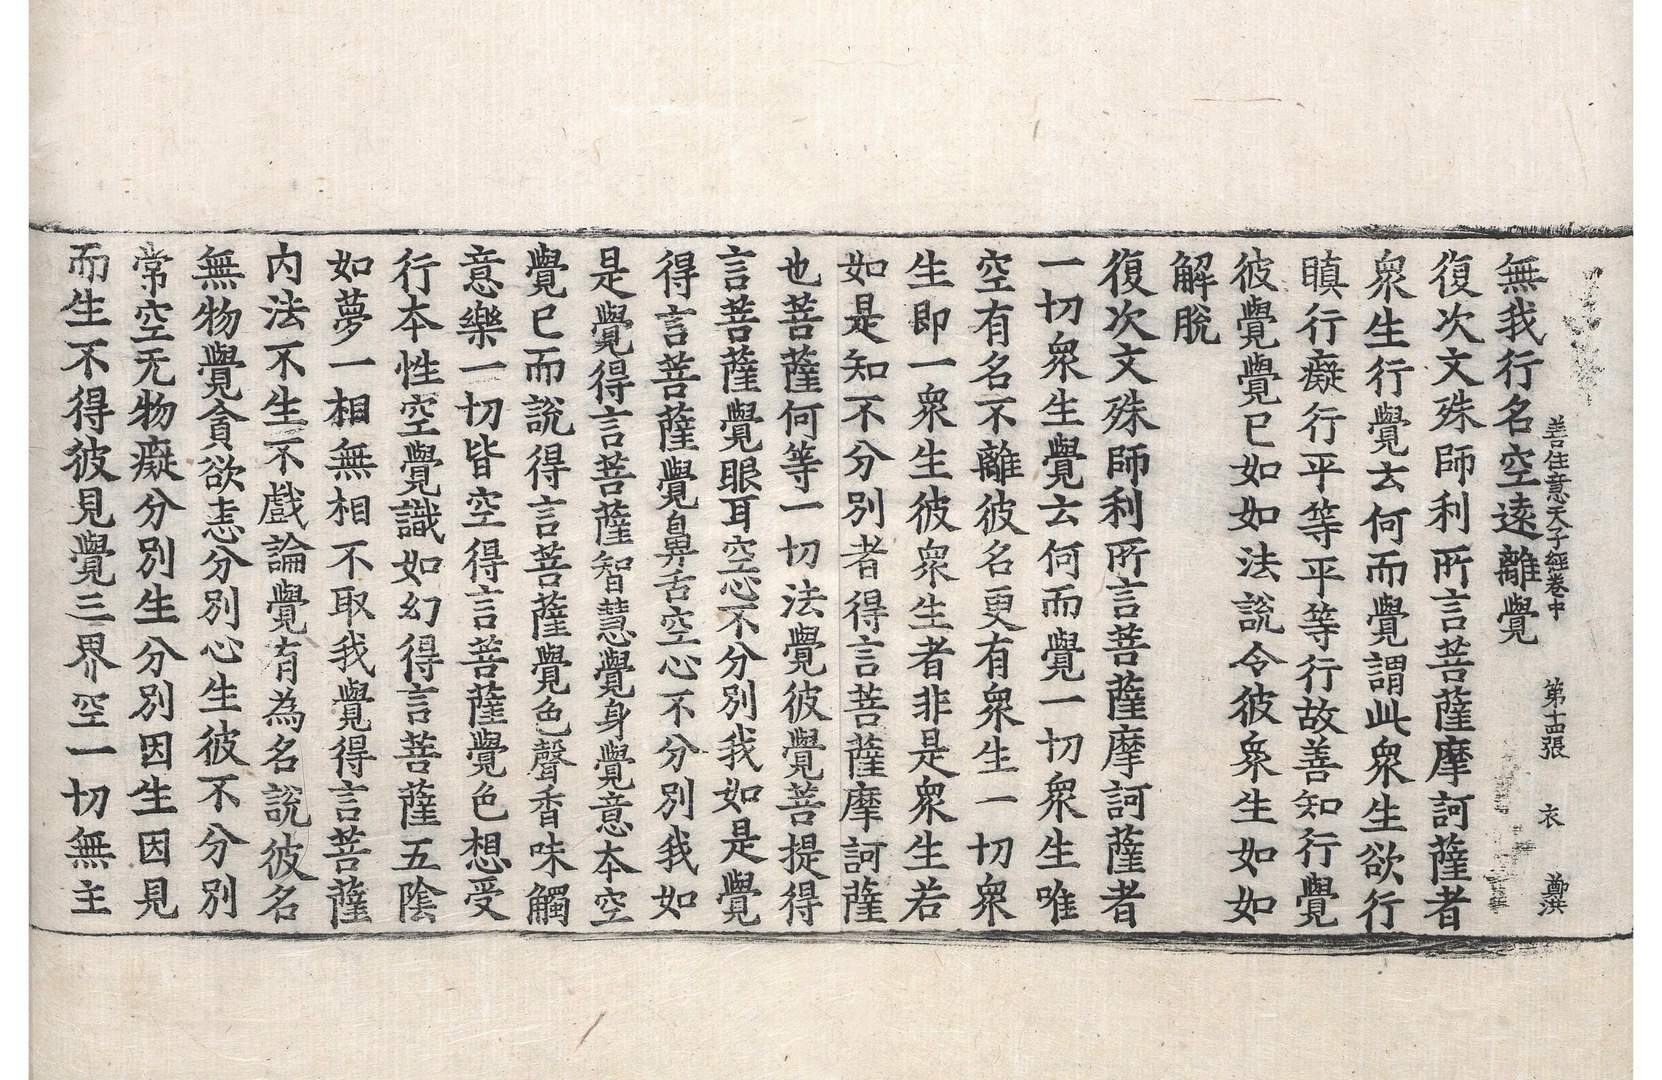 善住意天子經卷中　第十四張　衣　鄭洪
無我行名空遠離覺
復次文殊師利所言菩薩摩訶薩者
衆生行覺去何而覺謂此衆生欲行
瞋行癡行平等平等行故善知行覺
彼覺覺已如如法說令彼衆生如如
解脫
復次文殊師利所言菩薩摩訶薩者
一切衆生覺去何而覺一切衆生唯
空有名不離彼名更有衆生一切衆
生即一衆生彼衆生者非是衆生若
如是知不分別者得言菩薩摩訶薩
也菩薩何等一切法覺彼覺菩提得
言菩薩覺眼耳空心不分別我如是覺
得言菩薩覺鼻舌空心不分別我如
是覺得言菩薩智慧覺身覺意本空
覺已而說得言菩薩覺色聲香味觸
意樂一切皆空得言菩薩覺色想受
行本性空覺識如幻得言菩薩五陰
如夢一相無相不取我覺得言菩薩
內法不生不戲論覺有為名說彼名
無物覺貪欲恚分別心生彼不分別
常空无物癡分別生分別因生因見
而生不得彼見覺三界空一切無主